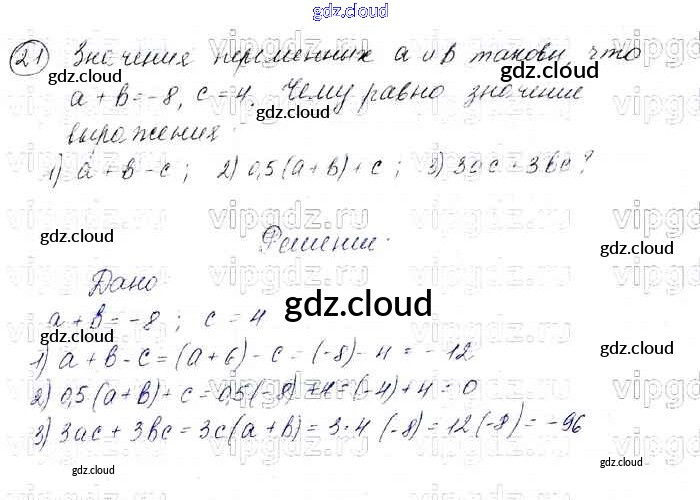 gdz.cloud
21 Значения переменных a и b таковы, что
gdz.cloud
gdz.cloud
a + b = -8, c = 4. Чему равно значение
gdz.cloud
выражения:
1) a + b - c ; 2) 0,5(a + b) + c ; 3) 3ac + 3bc?
vipgdz.ru
Решение.
gdz.cloud
gdz.cloud
Дано
gdz.cloud
a + b = -8 ; c = 4
1) a + b - c = (a + b) - c = (-8) - 4 = -12
gdz.cloud
2) 0,5(a + b) + c = 0,5(-8) + 4 = (-4) + 4 = 0
3) 3ac + 3bc = 3c(a + b) = 3·4 (-8) = 12(-8) = -96
gdz.cloud
gdz.cloud
gdz.cloud